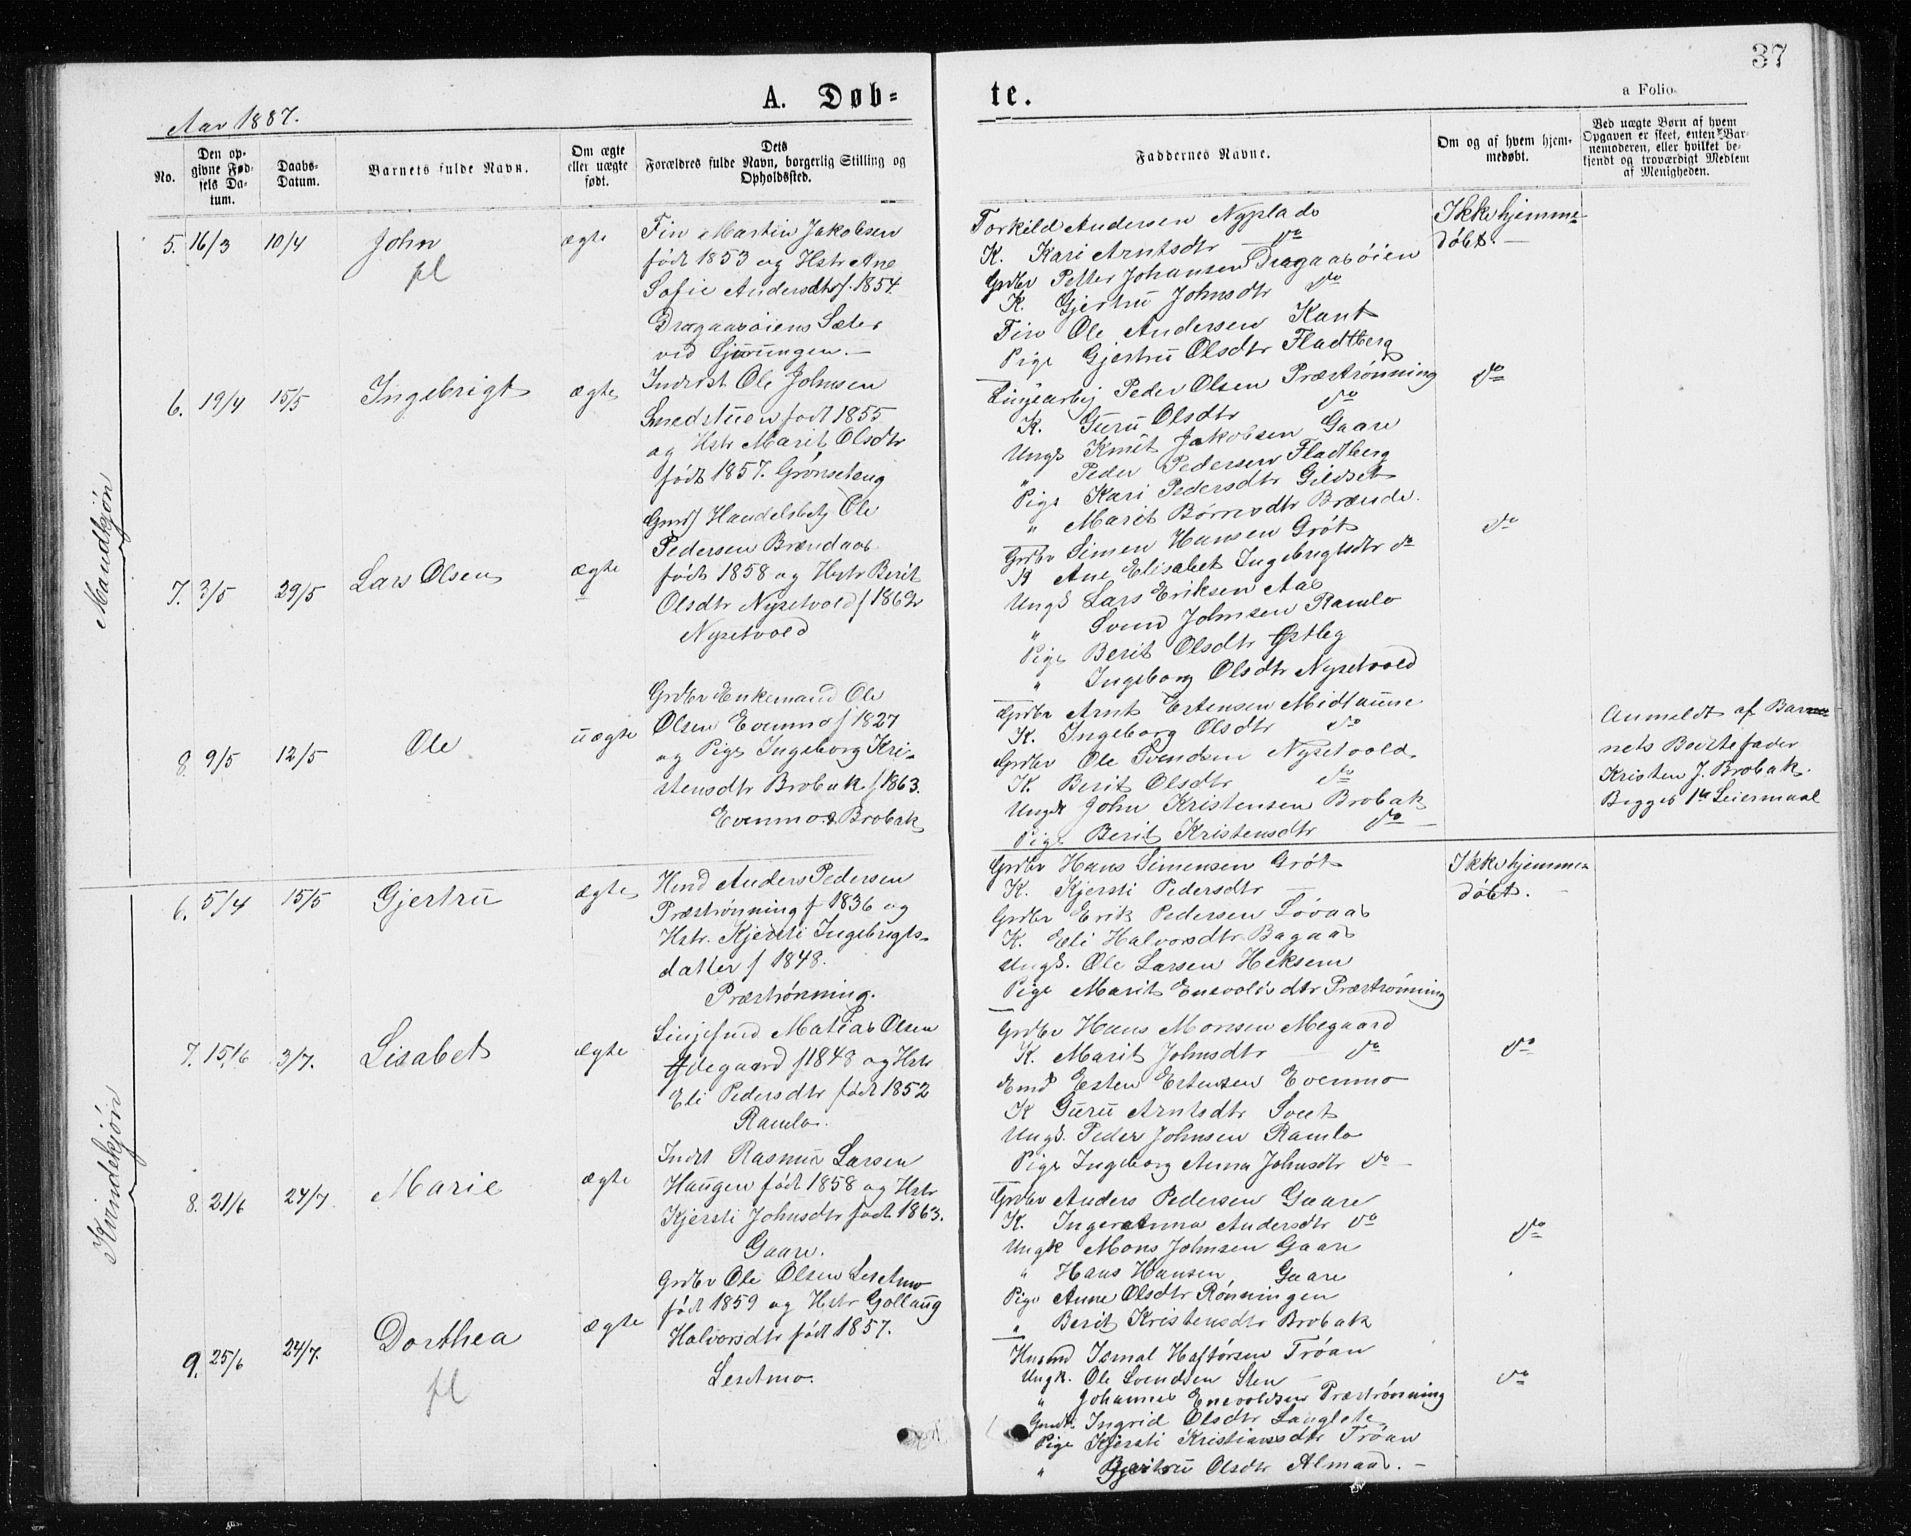 37
A. Døb-
te.
a Folio.
Aar 1887.
No.
Den op-
givne Fød-
sels Da-
tum.
Daabs-
Datum.
Barnets fulde Navn.
Om ægte
eller uægte
født.
Dets
Forældres fulde Navn, borgerlig Stilling og
Opholdssted.
Faddernes Navne.
Om og af hvem hjem-
medøbt.
Ved uægte Børn af hvem
Opgaven er skeet, enten Bar-
nemoderen, eller hvilket be-
kjendt og troværdigt Medlem
af Menigheden.
Mandkjøn
5. 16/3 10/4 John ægte
pl
Fin Martin Jakobsen
født 1853 og Hstr Ane
Sofie Andersdtr f. 1854
Dragaasøiens Sæter
vid
Torkild Andersen Nyplads
K. Kari Arntsdtr do
Grdbr Petter Johansen Dragaasøien
K. Gjertru Johnsdtr do
Fin Ole Andersen Kant
Pige Gjertru Olsdtr Fladtberg
Ikke hjemme-
døbt. —
6. 19/4 15/5 Ingebrigt ægte
Indrst Ole Johnsen
Smedstuen født 1855
og Hstr Marit Olsdtr
født 1857. Grønseteng
Linjearbj Peder Olsen Præstrønning
K. Guru Olsdtr do
Ungk Knut Jakobsen Gaare
" Peder Pedersen Fladtberg
Pige Kari Pedersdtr Gildset
" Marit Børresdtr Brænde.
do
7. 3/5 29/5 Lars Olsen ægte
Gmd Handelsbtj Ole
Pedersen Brændaas
født 1858 og Hstr Berit
Olsdtr Nysetvold f 1862
Nysetvold
Grdbr Simen Hansen Grøt
K Ane Elisabet Ingebrigtsdtr do
Ungk Lars Eriksen Aas
" Svend Johnsen Ramlo
Pige Berit Olsdtr Østby
" Ingeborg Olsdtr Nysetvold
do
8. 9/5 12/5 Ole uægte
Grdbr Enkemand Ole
Olsen Evenmo f 1827
og Pige Ingeborg Kri-
stensdtr Brobak f 1863.
Evenmo & Brobak
Grdbr Arnt Estensen Midtaune
K. Ingeborg Olsdtr do
Grdbr Ole Svendsen Nysetvold.
K. Berit Olsdtr do
Ungk John Kristensen Brobak
Pige Berit Kristensdtr do
Anmeldt af Bar-
nets Bedstefader
Kristen J. Brobak.
Begges 1ste Leiermaal
Kvindekjøn
6. 5/4 15/5 Gjertru ægte
Hmd Anders Pedersen
Præstrønning f 1836 og
Hstr. Kjersti Ingebrigts-
datter f 1848.
Præstrønning.
Grdbr Hans Simensen Grøt
K. Kjersti Pedersdtr —
Grdbr Erik Pedersen Løvaas
K. Eli Halvorsdtr Bagaas
Ungk. Ole Larsen Heksem
Pige Marit Enevoldsdtr Præstrønning
Ikke hjemme-
døbt. —
7. 15/6 3/7. Lisabet ægte
Linjefmd Matias Olsen
Ødegaard f 1848 og Hstr
Eli Pedersdtr født 1852
Ramlo.
Grdbr Hans Monsen Megaard
K. Marit Johnsdtr do
Emd Esten Estensen Evenmo
K Guru Arntsdtr
Ungk. Peder Johnsen Ramlo
Pige Ingeborg Anna Johnsdtr do
do
8. 21/6 24/7 Marie ægte
Indst Rasmus Larsen
Haugen født 1858 og Hstr
Kjersti Johnsdtr født 1863.
Gaare.
Grdbr Anders Pedersen Gaare
K. Ingeranna Andersdtr do
Ungk Mons Johnsen Gaare
" Hans Hansen Gaare
Pige Anne Olsdtr Rønningen
" Berit Kristensdtr Brobak
do
9. 25/6 24/7. Dorthea ægte
pl
Grdbr Ole Olsen Lesetmo
født 1859 og Hstr Gollaug
Halvorsdtr født 1857.
Lesetmo.
Husmd Ismal Haftorsen Trøan
Ungk. Ole Svendsen Sten —
" Johannes Enevoldsen Præstrønning
Ingrid Olsdtr Langlete
Pige Kjersti Kristiansdtr Trøan
" Gjertru Olsdtr Almaas. —
do